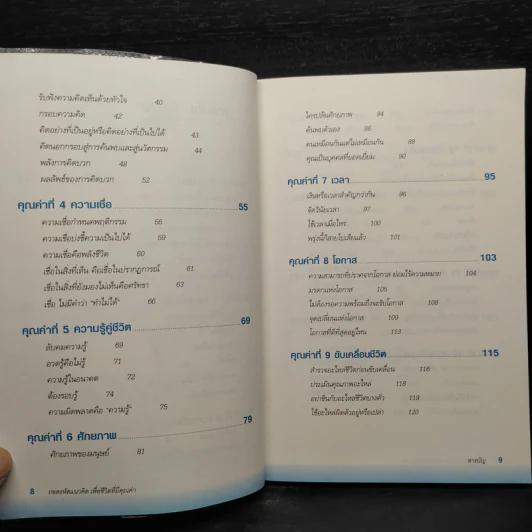 รับฟังความคิดเห็นด้วยหัวใจ 40
กรอบความคิด 42
คิดอย่างที่เป็นอยู่หรือคิดอย่างที่เป็นไปได้ 43
คิดนอกกรอบสู่การค้นพบและสู่นวัตกรรม 44
พลังการคิดบวก 48
ผลลัพธ์ของการคิดบวก 52
คุณค่าที่ 4 ความเชื่อ 55
ความเชื่อกำหนดพฤติกรรม 56
ความเชื่อบ่งชี้ความเป็นไปได้ 59
ความเชื่อคือพลังชีวิต 60
เชื่อในสิ่งที่เห็น คือเชื่อในปรากฏการณ์ 61
เชื่อในสิ่งที่ยังมองไม่เห็นคือศรัทธา 63
เชื่อ ไม่มีคำว่า "ทำไม่ได้" 66
คุณค่าที่ 5 ความรู้คู่ชีวิต 69
ลับคมความรู้ 69
อวดรู้คือไม่รู้ 71
ความรู้ในอนาคต 72
ต้องรอบรู้ 74
ความผิดพลาดคือ "ความรู้" 75
คุณค่าที่ 6 ศักยภาพ 79
ศักยภาพของมนุษย์ 81
8 ถอดรหัสแนวคิด เพื่อชีวิตที่มีคุณค่า
ใครปล้นศักยภาพ 84
ค้นพบตัวเอง 86
คนเหมือนกันแต่ไม่เหมือนกัน 88
คุณเป็นบุคคลที่ยอดเยี่ยม 90
คุณค่าที่ 7 เวลา 95
เงินหรือเวลาสำคัญกว่ากัน 96
จิตวินัยเวลา 97
ใช้เวลาเมื่อไหร่ 100
พรุ่งนี้ก็สายไปเสียแล้ว 101
คุณค่าที่ 8 โอกาส 103
ความสามารถที่ปราศจากโอกาส ย่อมไร้ความหมาย 104
มรดกแห่งโอกาส 105
ไม่ต้องรอความพร้อมถึงจะรับโอกาส 108
จุดเปลี่ยนแห่งโอกาส 109
โอกาสที่ดีที่สุดอยู่ไหน 113
คุณค่าที่ 9 ขับเคลื่อนชีวิต 115
สำรวจอะไหล่ชีวิตก่อนขับเคลื่อน 116
ประเมินคุณภาพอะไหล่ 118
อย่าชินกับอะไหล่ชีวิตบางตัว 119
ใช้อะไหล่ผิดตัวอยู่หรือเปล่า 120
สารบัญ 9